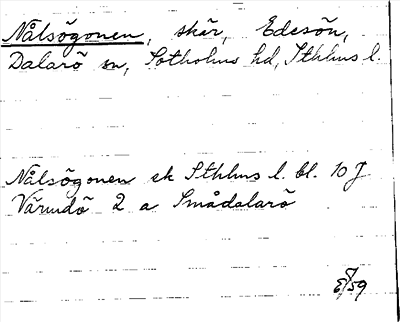 Nålsögonen, skär, Edesön,
Dalarö sn, Sotholms hd, Sthlms l.
Nålsögonen ek Sthlms l. bl. 10 J
Värmdö 2 a Smådalarö